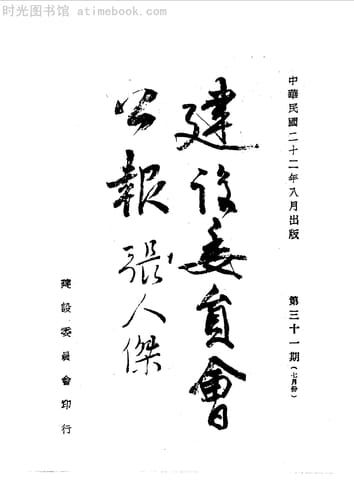 时光图书馆 atimebook.com
中華民國二十二年八月出版
第三十一期(七月份)
建設委員會
公報 張人傑
建設委員會印行